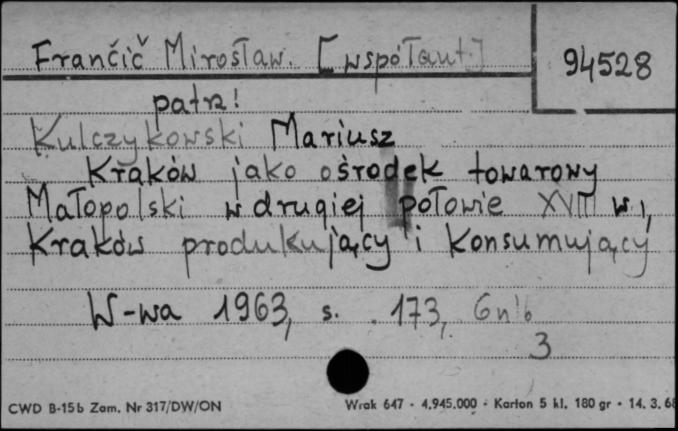 Frančič Mirosław. [współaut.]
94528
patrz!
Kulczykowski Mariusz
Kraków jako ośrodek towarowy
Małopolski w drugiej połowie XVIII w.,
Kraków produkujący i konsumujący
W-wa 1963, s. 173, 6 nlb
3
CWD B-15b Zam. Nr 317/DW/ON
Wrak 647 - 4.945.000 - Karton 5 kl. 180 gr - 14. 3. 68